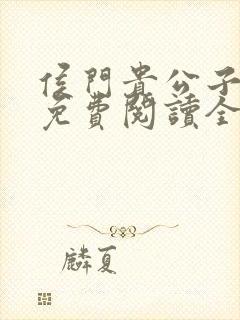 侯門貴公子
免費閱讀全
麟夏